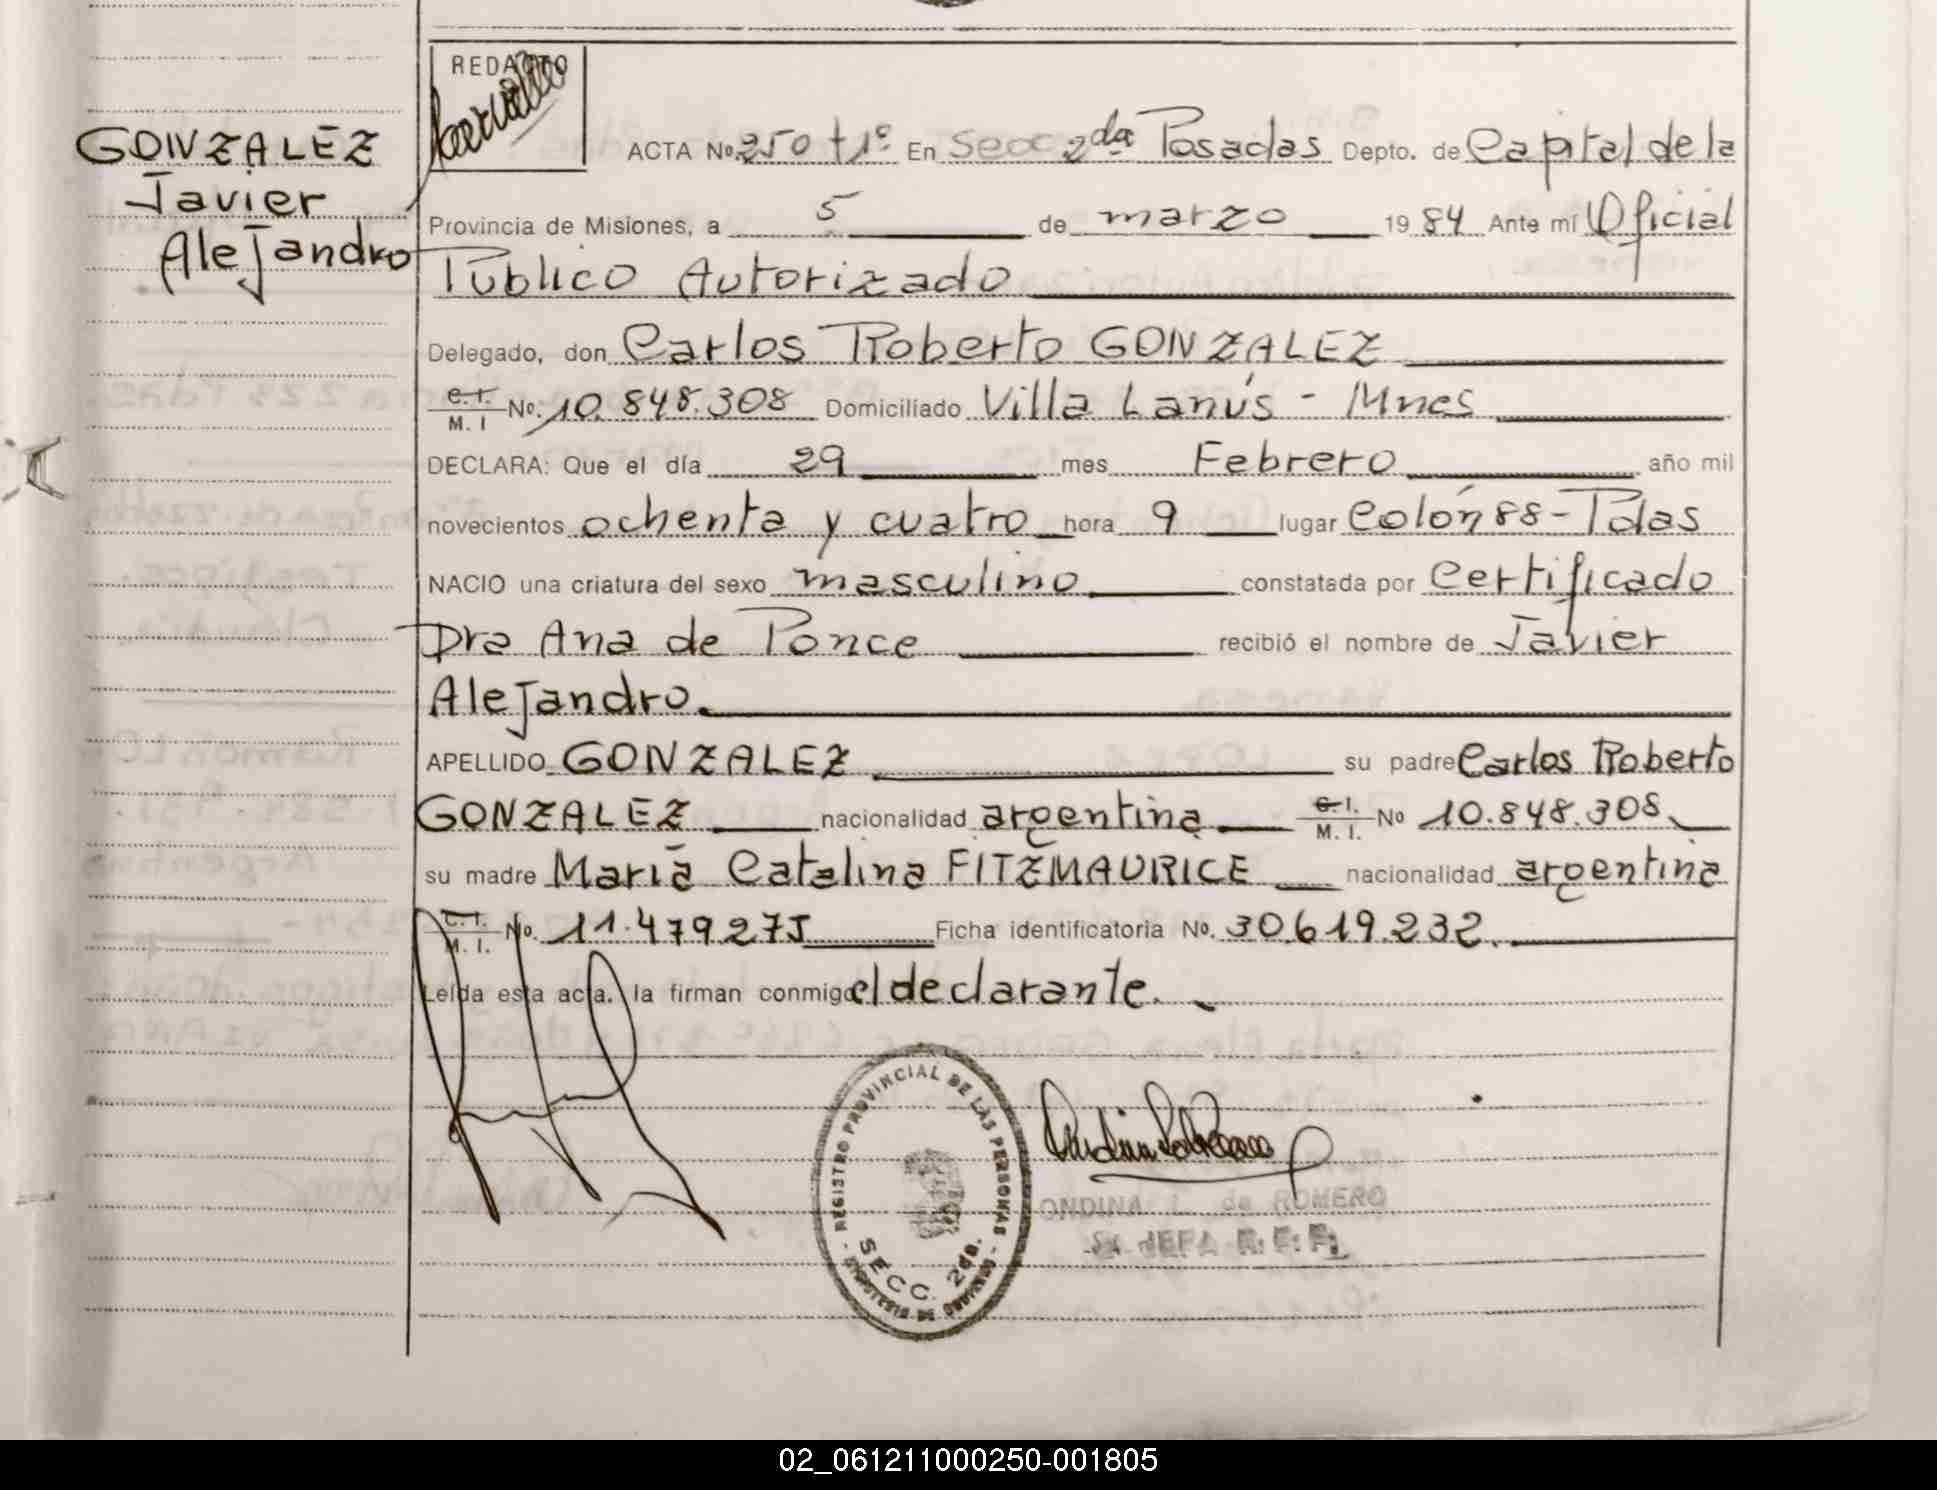 GONZALEZ
Javier
Alejandro
REDACTO
ACTA No. 250 t 1º En Secc 2da Posadas Depto. de Capital de la
Provincia de Misiones, a 5 de marzo 1984 Ante mí Oficial
Público Autorizado
Delegado, don Carlos Roberto GONZALEZ
C.I. M. I No. 10.848.308 Domiciliado Villa Lanús - Mnes
DECLARA: Que el día 29 mes Febrero año mil
novecientos ochenta y cuatro hora 9 lugar Colón 88 - Pdas
NACIO una criatura del sexo masculino constatada por Certificado
Dra Ana de Ponce recibió el nombre de Javier
Alejandro.
APELLIDO GONZALEZ su padre Carlos Roberto
GONZALEZ nacionalidad argentina C.I. M. I. No 10.848.308
su madre María Catalina FITZMAURICE nacionalidad argentina
C.I. M. I. No. 11.479.275 Ficha identificatoria No. 30.619.232.
Leída esta acta, la firman conmigo el declarante.
REGISTRO PROVINCIAL DE LAS PERSONAS
SECC. 2da.
ONDINA de ROMERO
JEFA R. F. F.
02_061211000250-001805